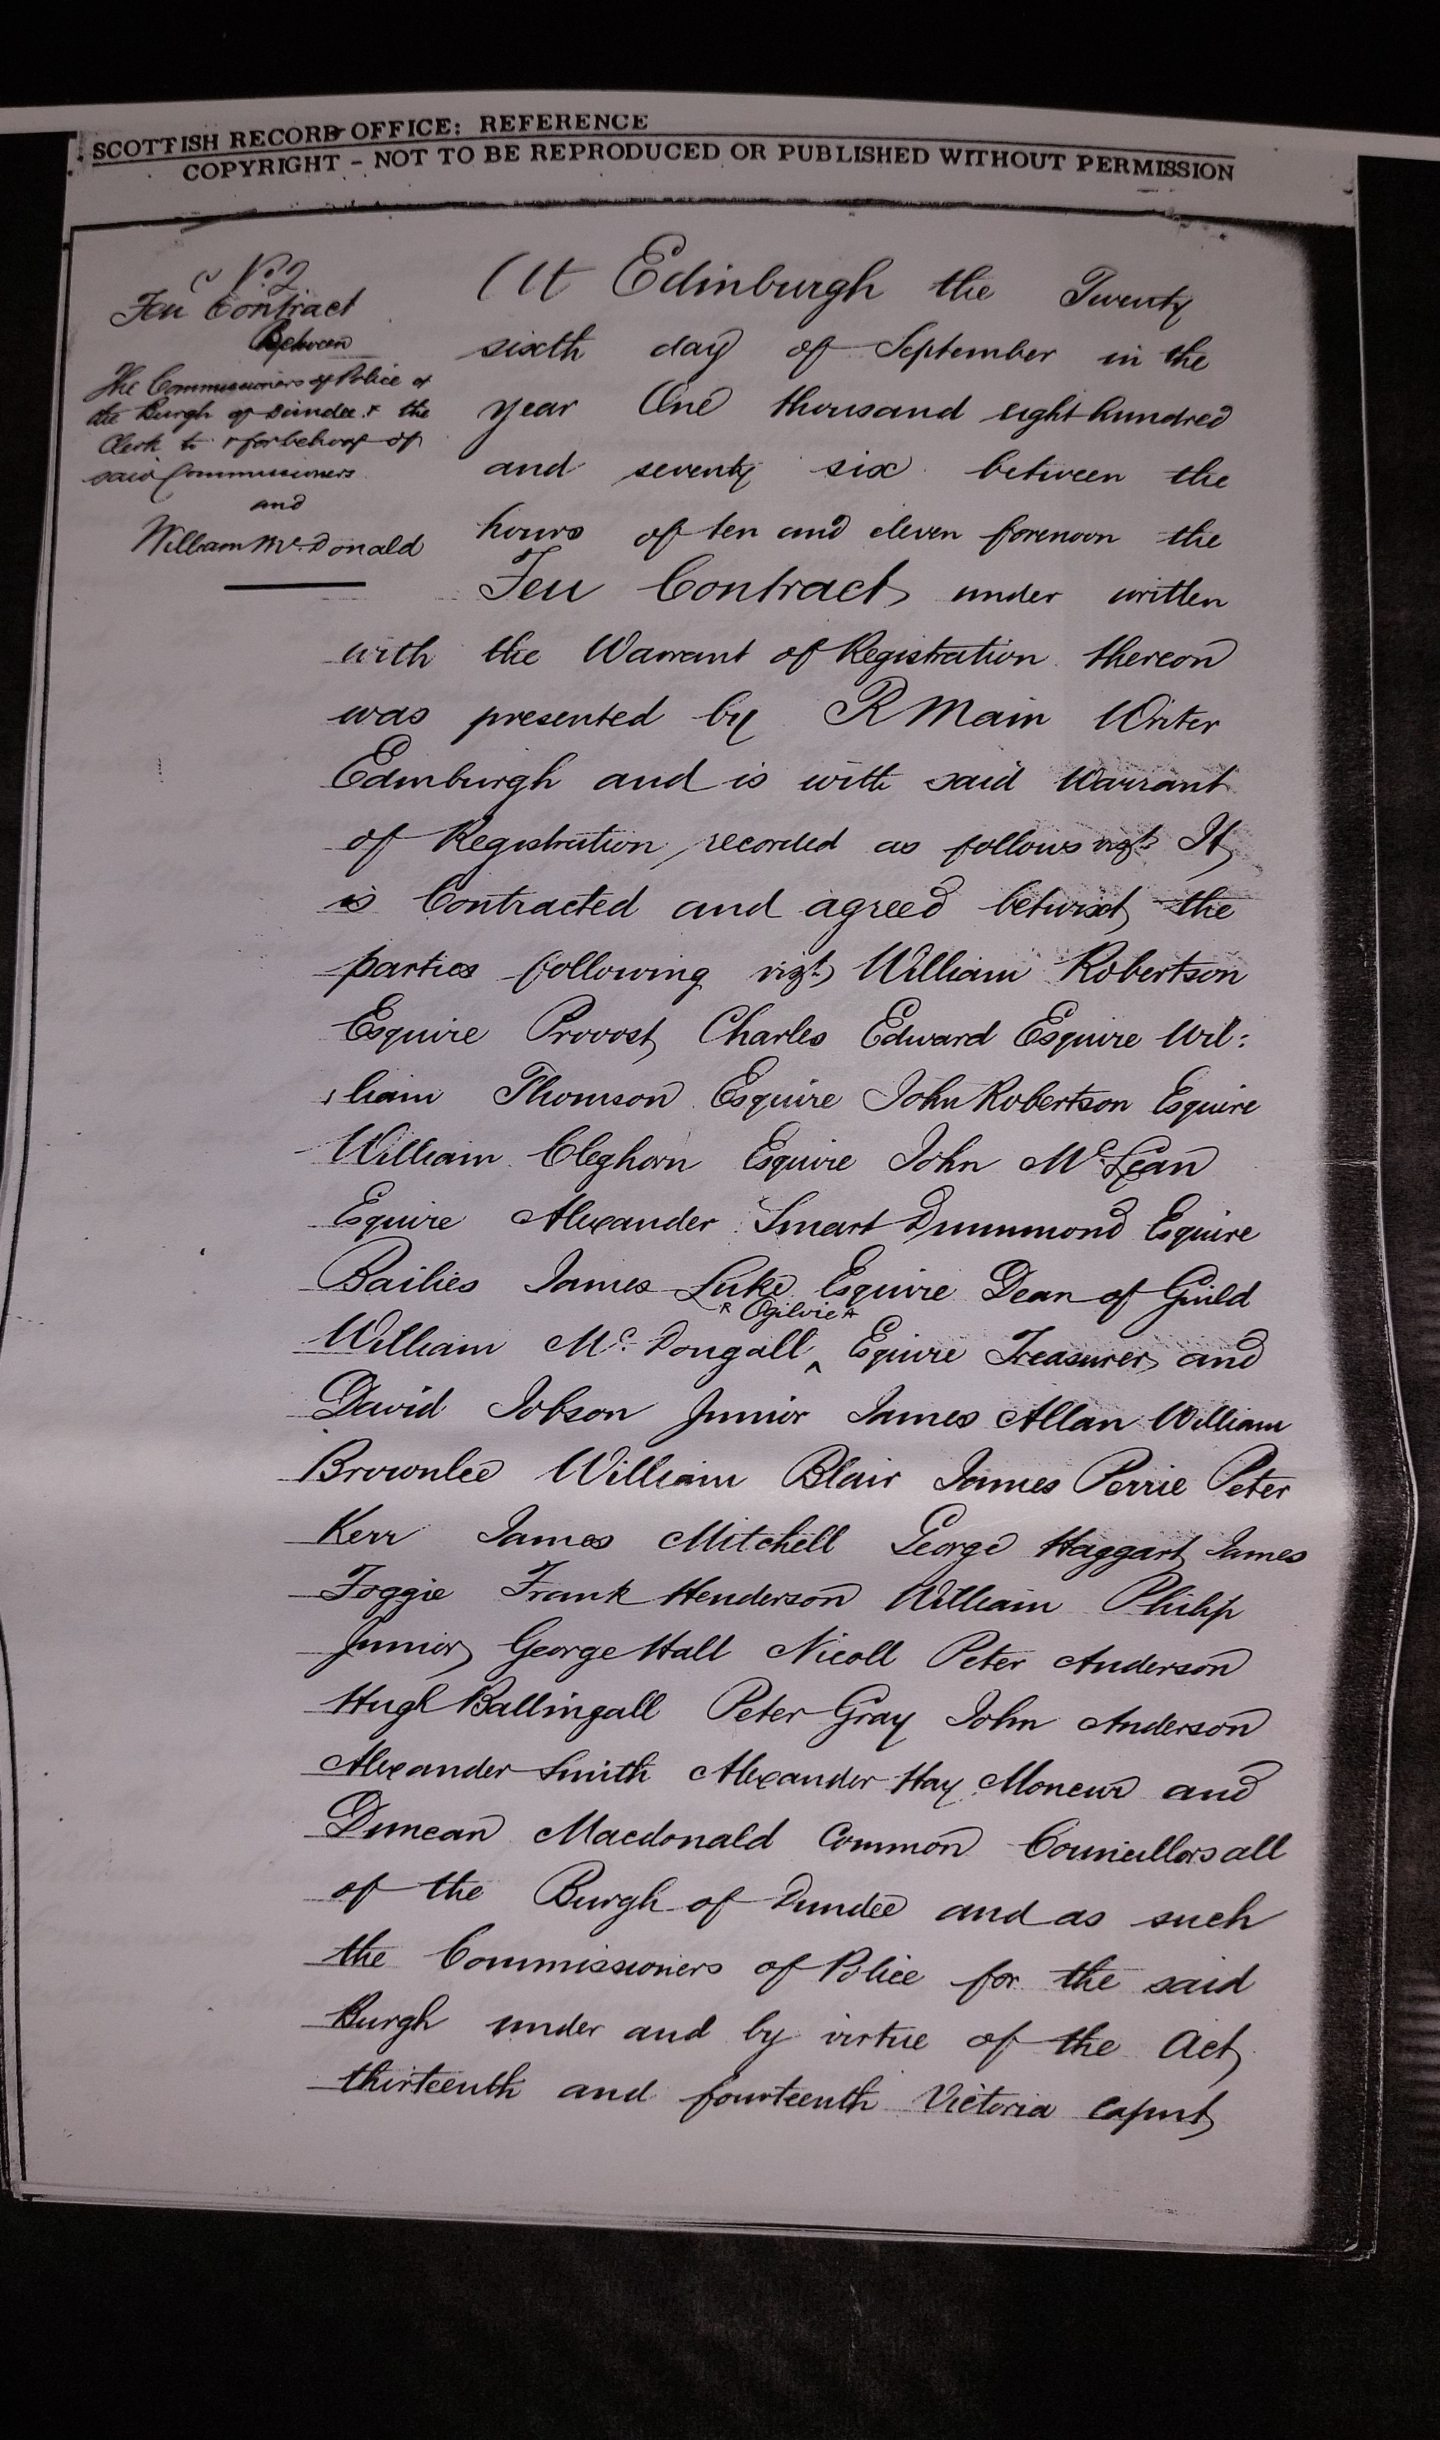 SCOTTISH RECORD OFFICE: REFERENCE
COPYRIGHT - NOT TO BE REPRODUCED OR PUBLISHED WITHOUT PERMISSION
No. 2
Feu Contract
Between
The Commissioners of Police of
the Burgh of Dundee & the
Clerk to & for behoof of
said Commissioners
and
William McDonald
At Edinburgh the Twenty
sixth day of September in the
year One thousand eight hundred
and seventy six between the
hours of ten and eleven forenoon the
Feu Contract under written
with the Warrant of Registration thereon
was presented by R Main Writer
Edinburgh and is with said Warrant
of Registration recorded as follows vizt. It
is Contracted and agreed betwixt the
parties following vizt. William Robertson
Esquire Provost Charles Edward Esquire Wil:
:liam Thomson Esquire John Robertson Esquire
William Cleghorn Esquire John McLean
Esquire Alexander Smart Drummond Esquire
Bailies James Luke Esquire Dean of Guild
x Ogilvie x
William McDougall ^ Esquire Treasurer and
David Jobson Junior James Allan William
Brownlee William Blair James Perrie Peter
Kerr James Mitchell George Haggart James
Foggie Frank Henderson William Philip
Junior George Hall Nicoll Peter Anderson
Hugh Ballingall Peter Gray John Anderson
Alexander Smith Alexander Hay Moncur and
Duncan Macdonald Common Councillors all
of the Burgh of Dundee and as such
the Commissioners of Police for the said
Burgh under and by virtue of the Act
thirteenth and fourteenth Victoria caput